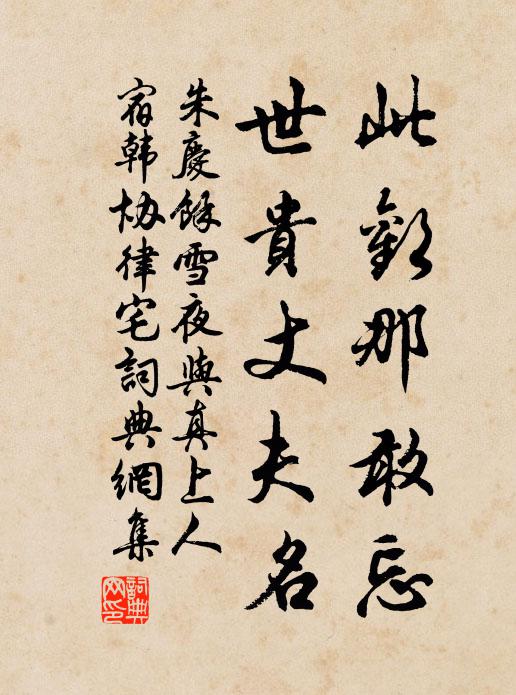 此歡那敢忘
世貴丈夫名
朱慶餘雪夜與真上人
宿韓協律宅詞典網集
詞典網印